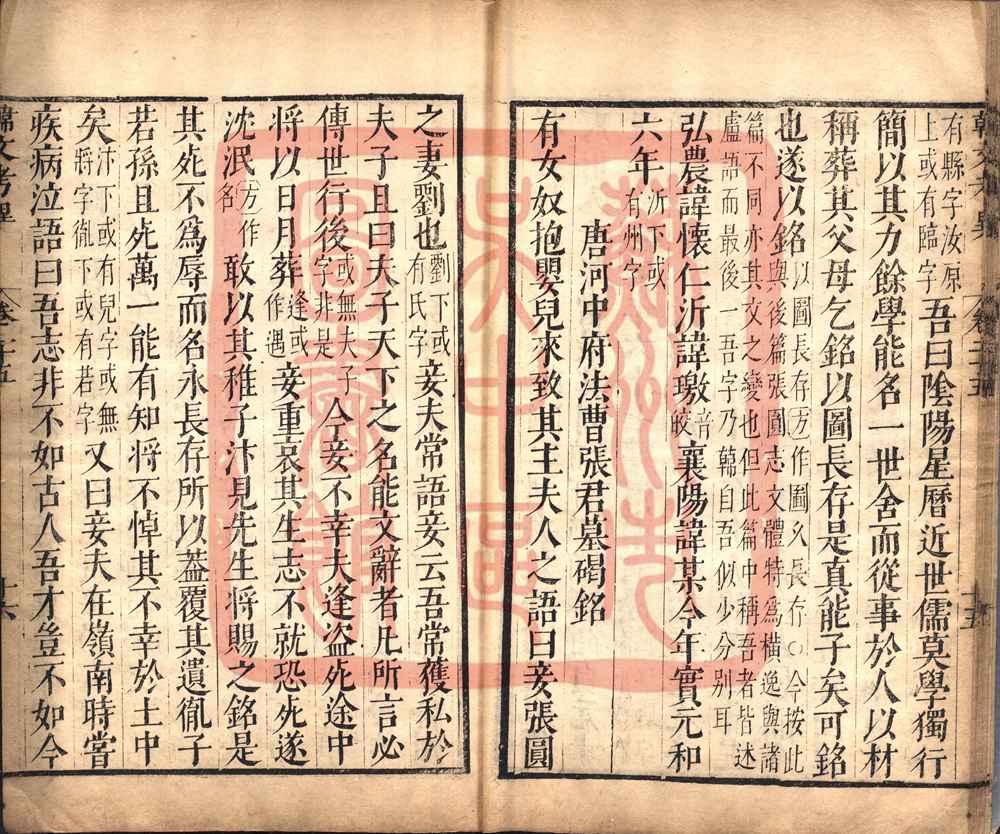 有縣字汝原上或有臨字吾曰陰陽星曆近世儒莫學獨行
簡以其力餘學能名一世舍而從事於人以材
稱葬其父母乞銘以圖長存是真能子矣可銘
也遂以銘以圖長存方作圖久長存○今按此篇不同亦其文之變也但此篇中稱吾者皆述與後篇張圓志文體特爲橫逸與諸盧語而最後一吾字乃韓自吾似少分別耳
弘農諱懷仁沂諱璬音皎襄陽諱某今年實元和
六年沂下或有州字
唐河中府法曹張君墓碣銘
有女奴抱嬰兒來致其主夫人之語曰妾張圓
之妻劉也劉下或有氏字妾夫常語妾云吾常獲私於
夫子且曰夫子天下之名能文辭者凡所言必
傳世行後或無夫子字非是今妾不幸夫逢盗死途中
將以日月葬逢或作遇妾重哀其生志不就恐死遂
沈泯方作名敢以其稚子汴見先生將賜之銘是
其死不爲辱而名永長存所以蓋覆其遺胤子
若孫且死萬一能有知將不悼其不幸於土中
矣汴下或有兒字或無將字胤下或有若字又曰妾夫在嶺南時嘗
疾病泣語曰吾志非不如古人吾才豈不如今
韓文考異
卷二十五
十六